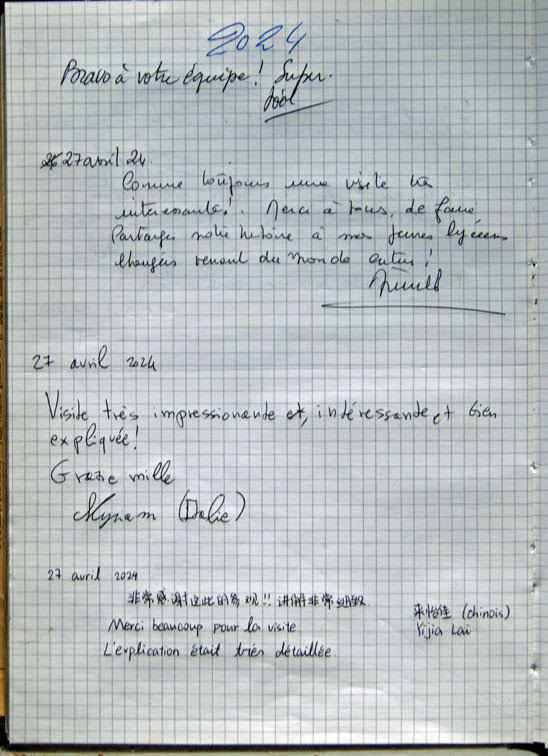 2024
Bravo à votre équipe! Super.
27 avril 24.
Comme toujours une visite très
intéressante!. Merci à tous, de faire
Partager notre histoire à nos jeunes lycéens
étrangers venant du monde entier!
27 avril 2024
Visite très impressionante et, intéressante et bien
expliquée!
Grazie mille
Myriam (Italie)
27 avril 2024
非常感谢这此的参观!! 讲解非常细致
来怡佳 (chinois)
Merci beaucoup pour la visite
Yijia Lai
L'explication était très détaillée